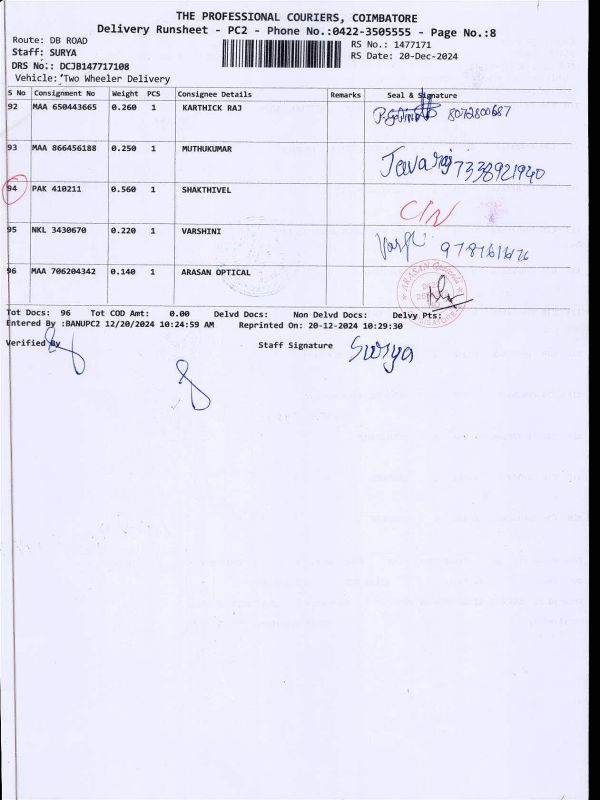 THE PROFESSIONAL COURIERS, COIMBATORE
Delivery Runsheet - PC2 - Phone No.:0422-3505555 - Page No.:8
Route: DB ROAD
RS No.: 1477171
Staff: SURYA
RS Date: 20-Dec-2024
DRS No.: DCJB147717108
Vehicle: Two Wheeler Delivery
S No Consignment No Weight PCS Consignee Details Remarks Seal & Signature
92 MAA 650443665 0.260 1 KARTHICK RAJ 8072800687
93 MAA 866456188 0.250 1 MUTHUKUMAR 7338921940
94 PAK 410211 0.560 1 SHAKTHIVEL C/N
95 NKL 3430670 0.220 1 VARSHINI
96 MAA 706204342 0.140 1 ARASAN OPTICAL
Tot Docs: 96 Tot COD Amt: 0.00 Delvd Docs: Non Delvd Docs: Delvy Pts:
Entered By :BANUPC2 12/20/2024 10:24:59 AM Reprinted On: 20-12-2024 10:29:30
Verified By Staff Signature Surya